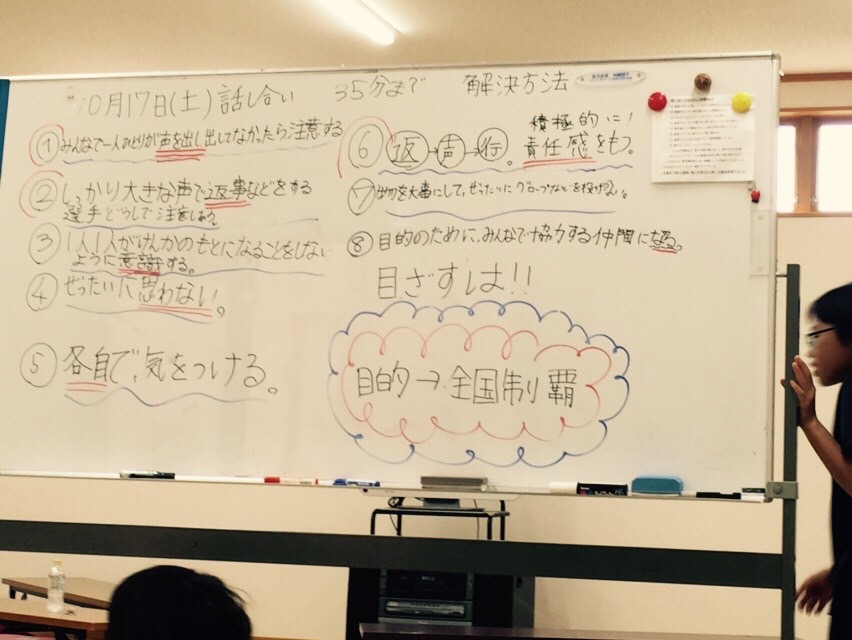 10月17日(土)話し合い 35分まで 解決方法
①みんなで一人ひとりが声を出し出してなかったら注意する
②しっかり大きな声で返事などをする
選手どうしで注意しあう。
③1人1人がけんかのもとになることをしない
ように意識する。
④ぜったいに思わない。
⑤各自で、気をつける。
⑥返→声→行。積極的に!
責任感をもつ。
⑦を大事にして、ぜったいにグローブなどを投げない。
⑧目的のために、みんなで協力する仲間になる。
目ざすは!!
目的→全国制覇